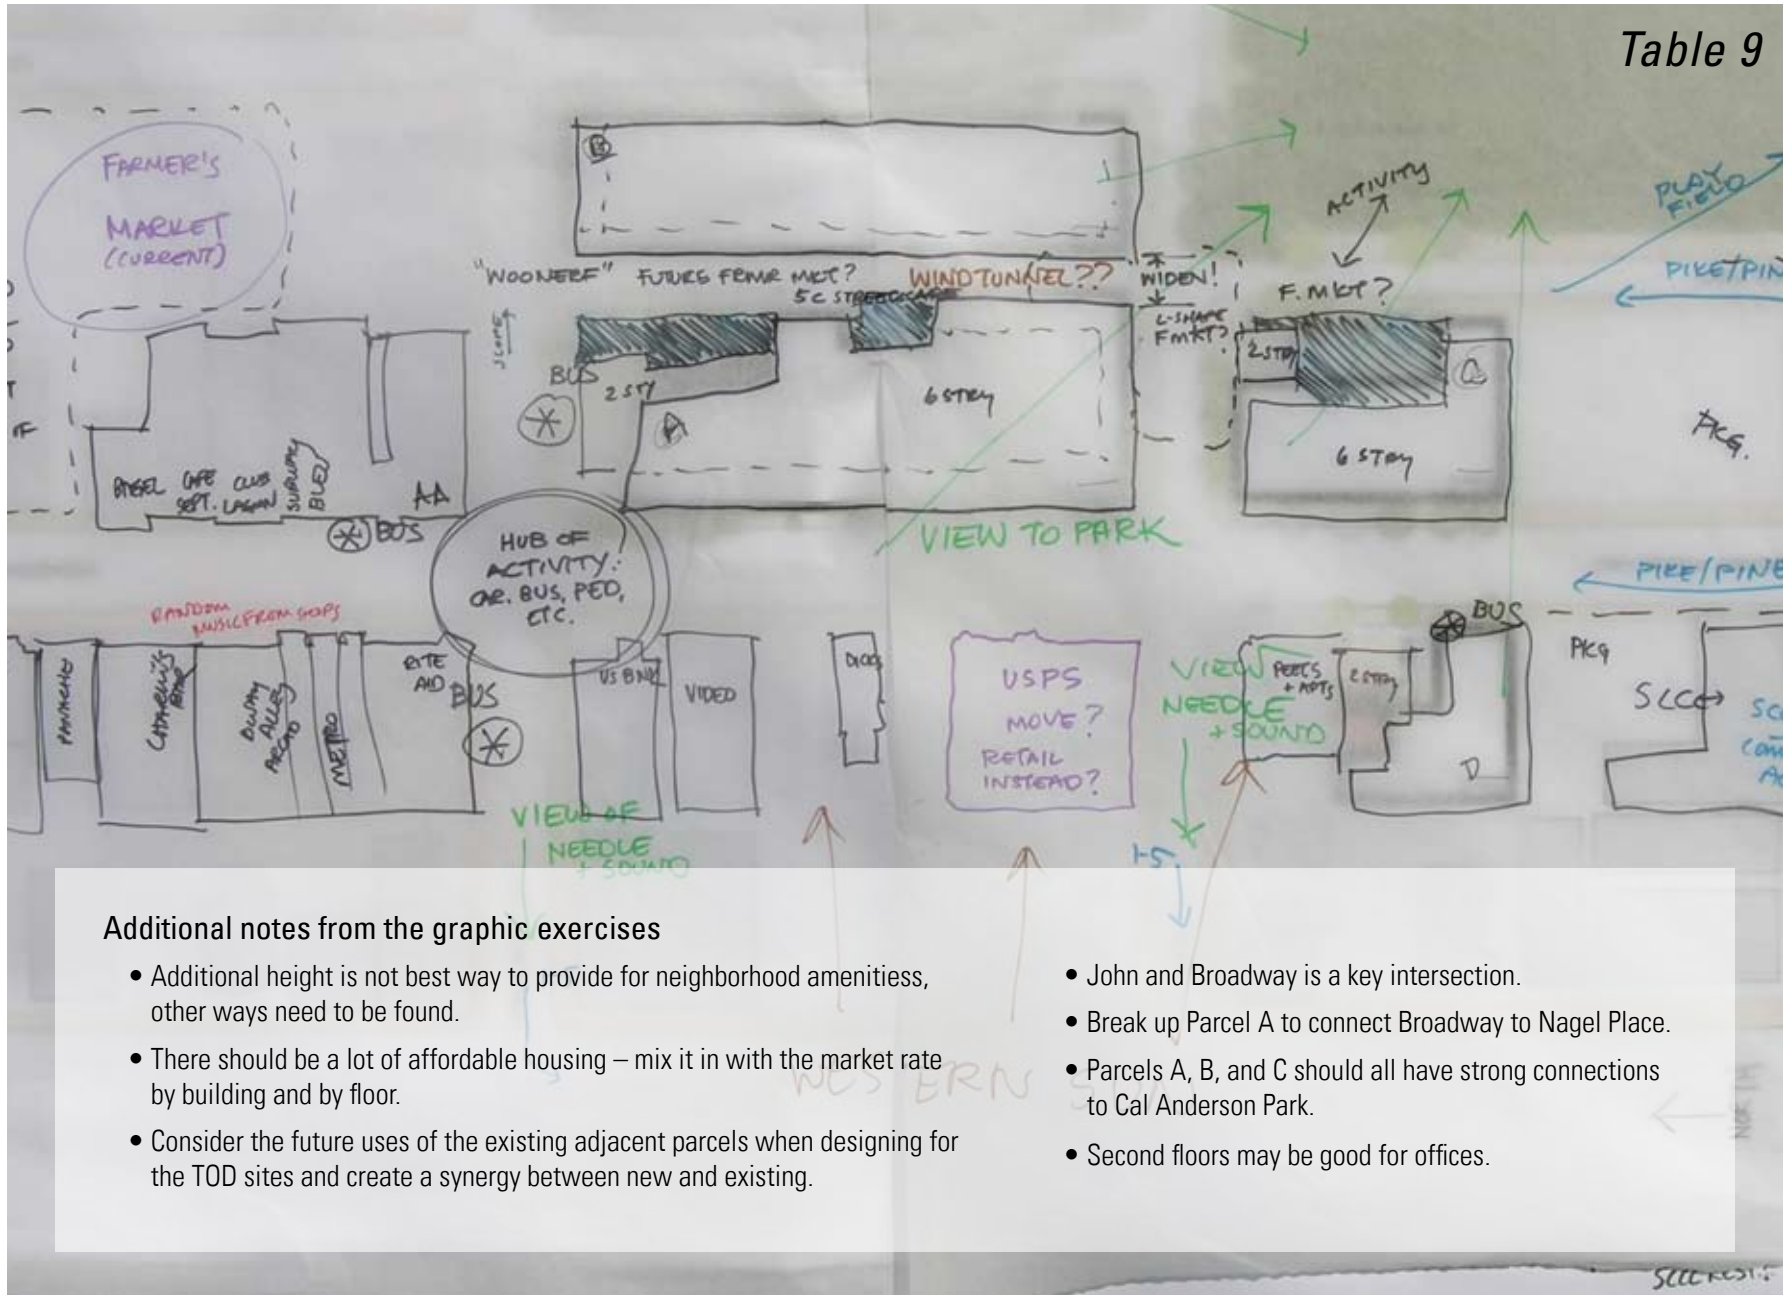 Table 9
FARMER'S
MARKET
(CURRENT)
B
ACTIVITY
PLAY
FIELD
"WOONERF"
FUTURE FRMR MKT?
WIND TUNNEL??
WIDEN!
F. MKT?
PIKE/PIN
L-SHAPE
FMKT?
BUS
2 STY
A
6 STRY
2 STRY
C
6 STRY
PKG.
BAGEL
CAFE
SEPT.
CLUB
LAGOON
SUBWAY
BLEU
AA
BUS
HUB OF
ACTIVITY:
CAR, BUS, PED,
ETC.
VIEW TO PARK
PIKE/PINE
RANDOM
MUSIC FROM SHOPS
PANACHE
CHARLIE'S
BAR
METRO
RITE
AID
BUS
US BNK
VIDEO
DICKS
USPS
MOVE?
RETAIL
INSTEAD?
VIEW
NEEDLE
+ SOUND
PEETS
+ APTS
2 STRY
BUS
D
PKG
SCCC
VIEW OF
NEEDLE
+ SOUND
I-5
WESTERN SUN
NORTH
Additional notes from the graphic exercises
• Additional height is not best way to provide for neighborhood amenitiess,
other ways need to be found.
• There should be a lot of affordable housing – mix it in with the market rate
by building and by floor.
• Consider the future uses of the existing adjacent parcels when designing for
the TOD sites and create a synergy between new and existing.
• John and Broadway is a key intersection.
• Break up Parcel A to connect Broadway to Nagel Place.
• Parcels A, B, and C should all have strong connections
to Cal Anderson Park.
• Second floors may be good for offices.